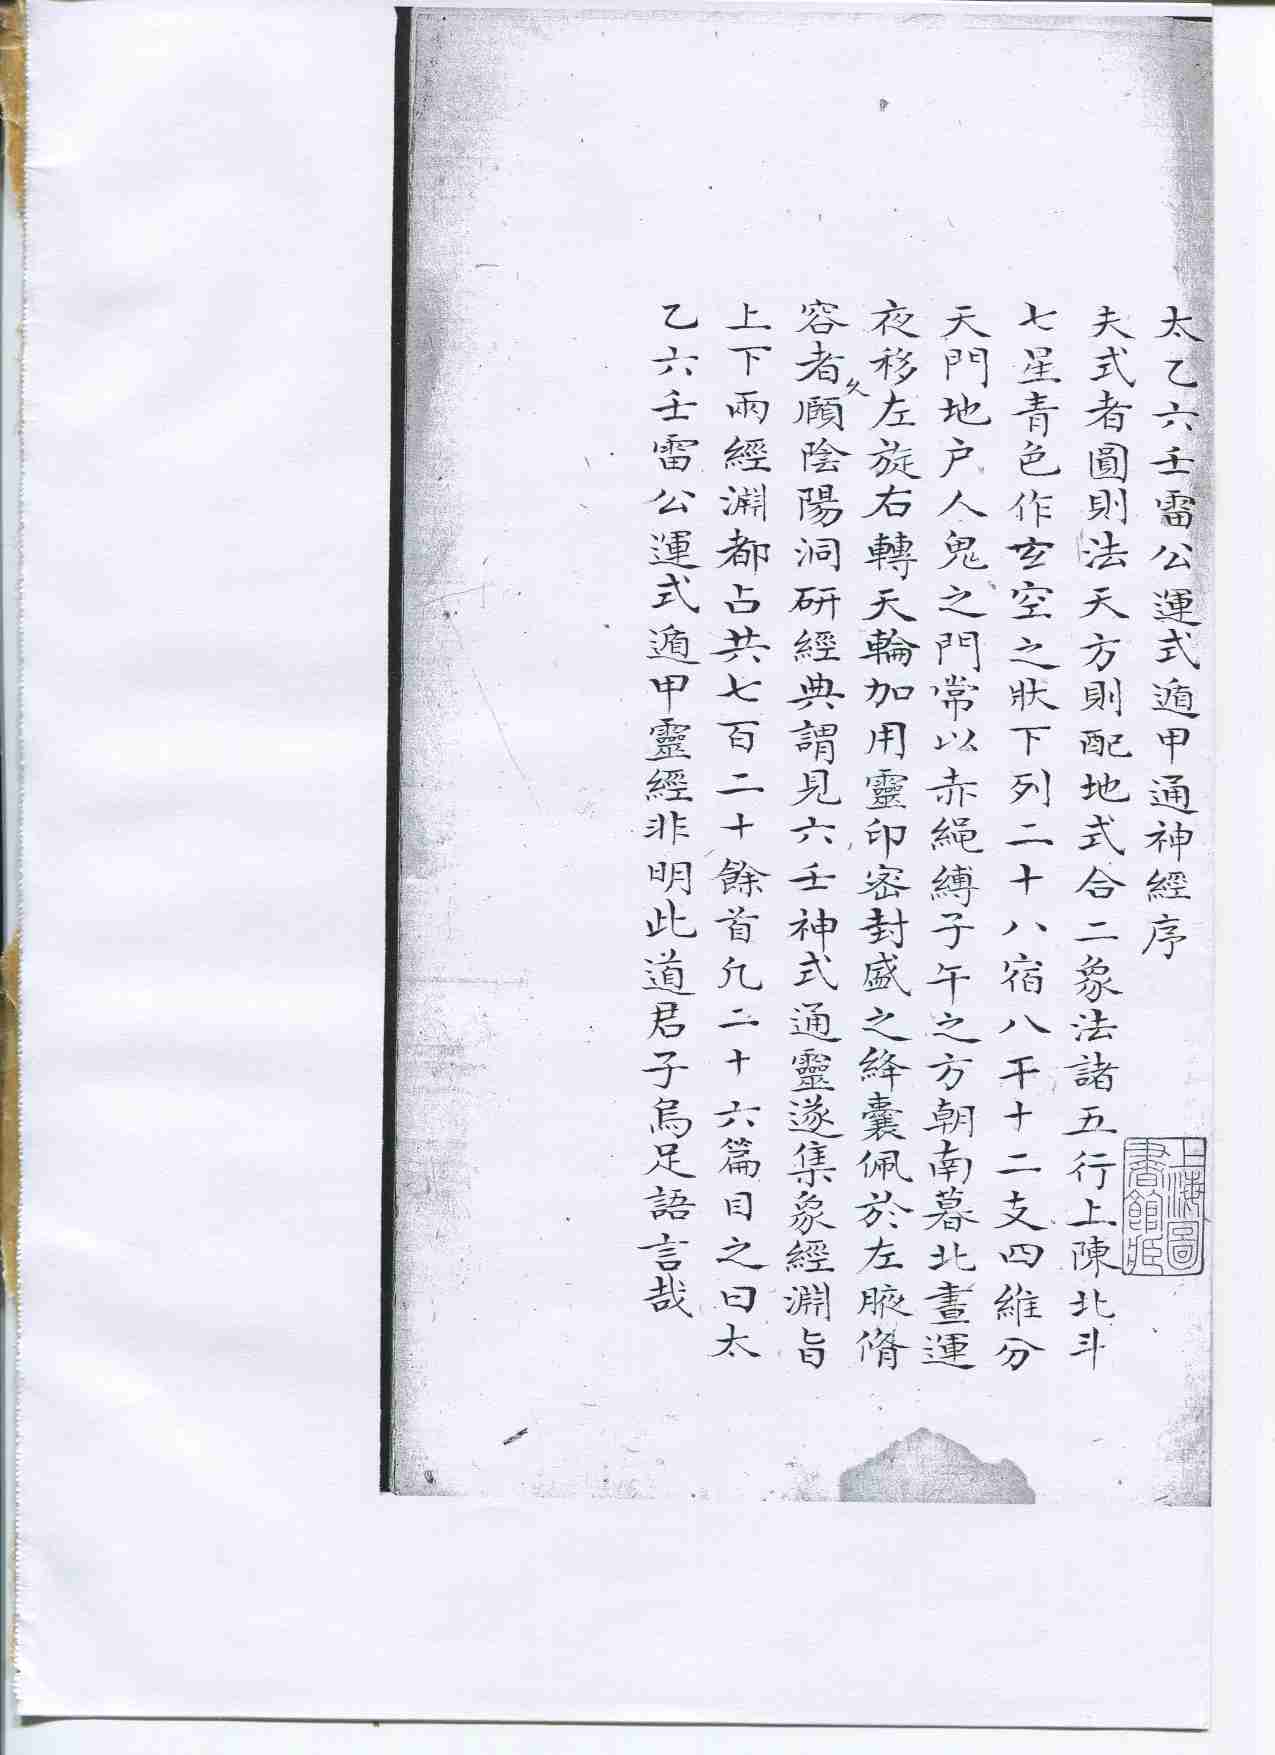 太乙六壬雷公運式遁甲通神經序
夫式者圓則法天方則配地式合二象法諸五行上陳北斗
七星青色作玄空之狀下列二十八宿八干十二支四維分
天門地户人鬼之門常以赤繩縛子午之方朝南暮北晝運
夜移左旋右轉天輪加用靈印密封盛之絳囊佩於左腋脩
容者久願陰陽洞研經典謂見六壬神式通靈遂集象經淵旨
上下兩經淵都占共七百二十餘首凢二十六篇目之曰太
乙六壬雷公運式遁甲靈經非明此道君子烏足語言哉
上海圖
書館藏